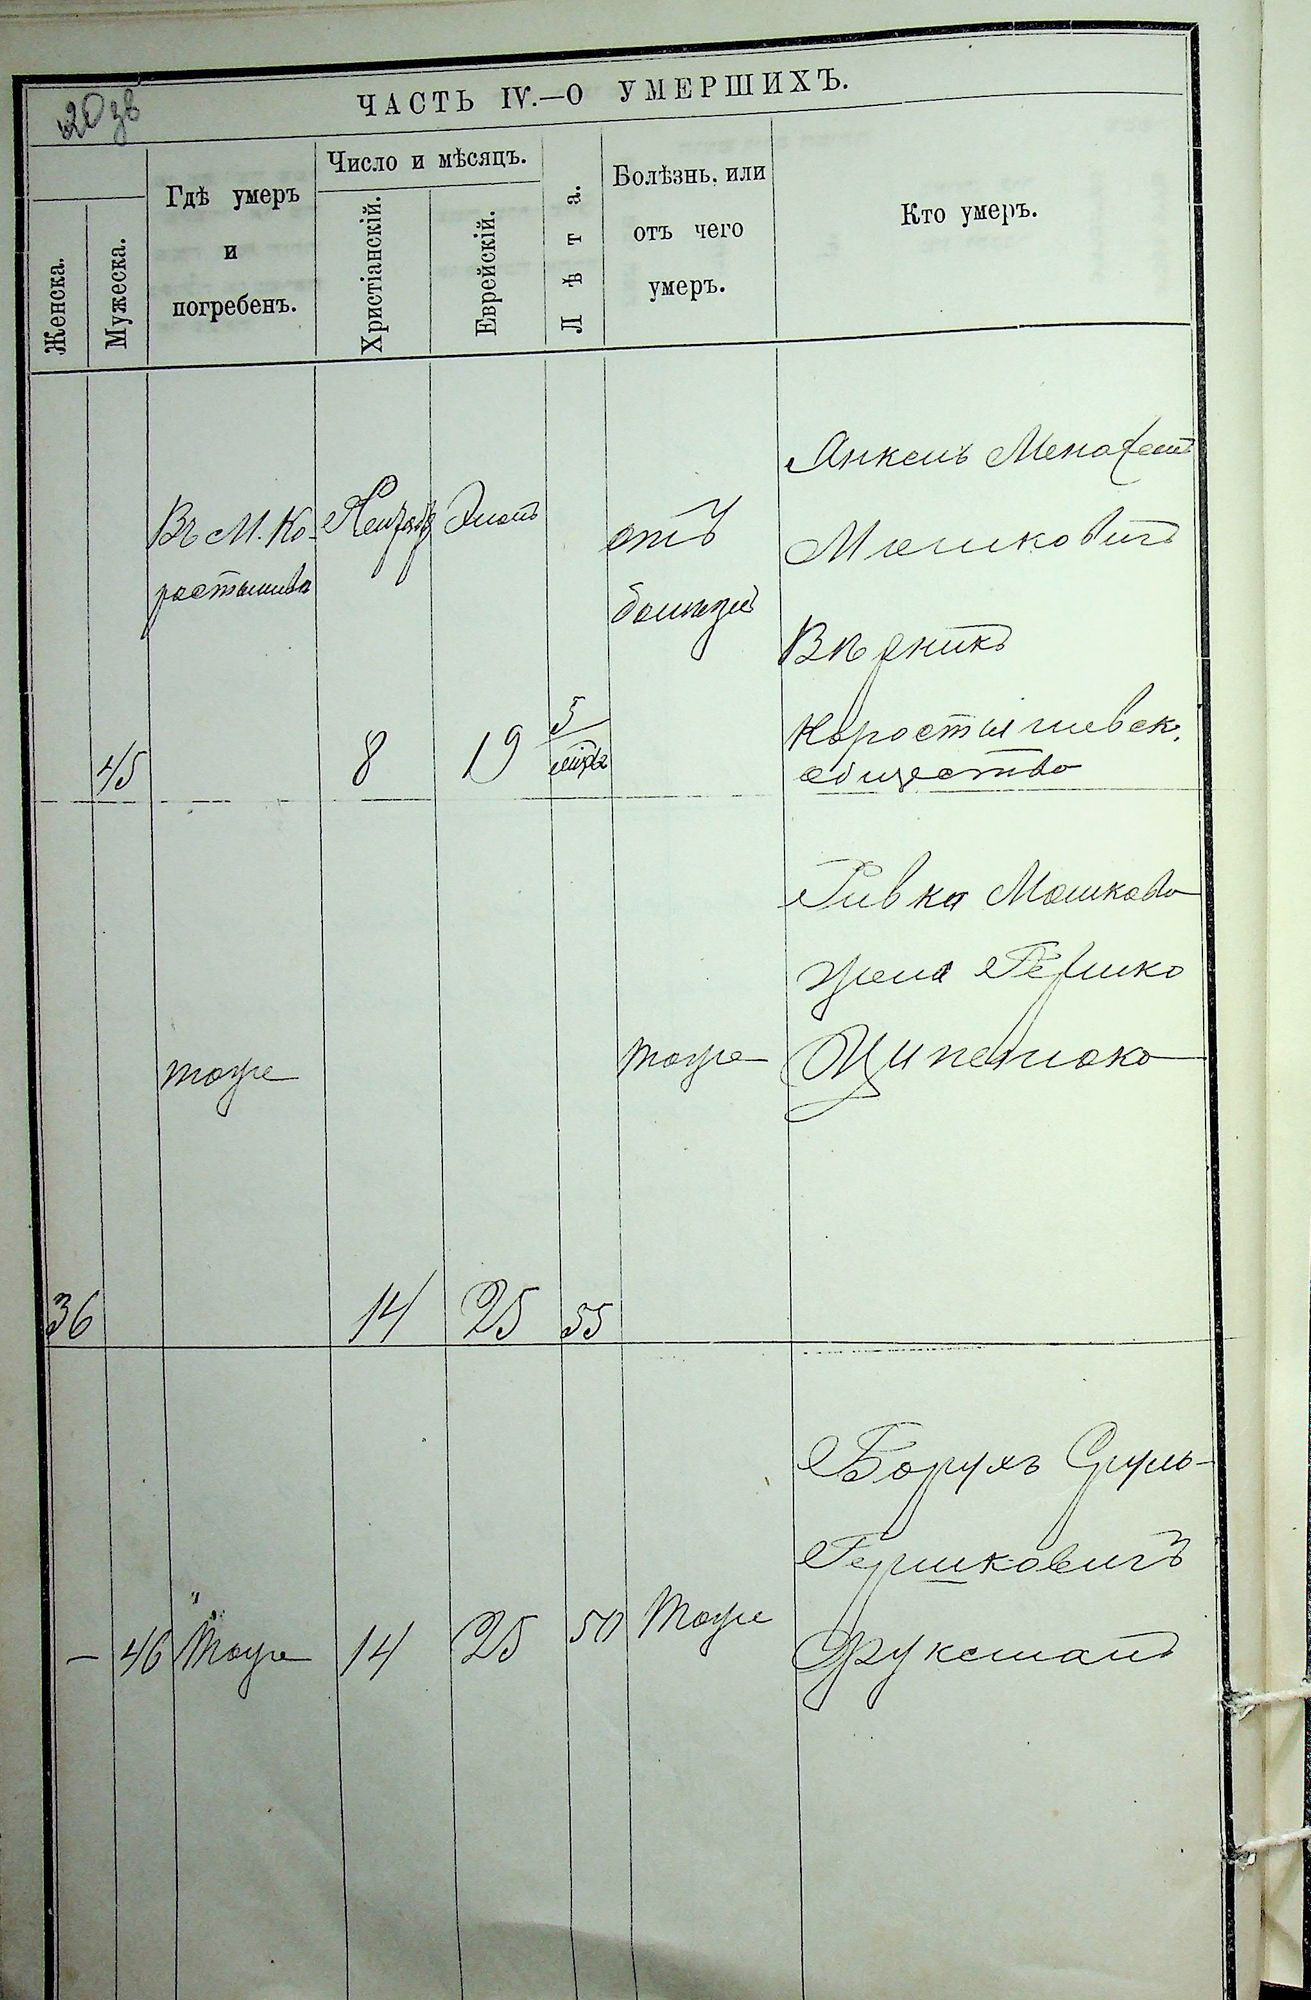 20 зв
ЧАСТЬ IV.—О УМЕРШИХЪ.
Женска.
Мужеска.
Гдѣ умеръ
и
погребенъ.
Число и мѣсяцъ.
Христіанскій.
Еврейскій.
Лѣта.
Болѣзнь, или
отъ чего
умеръ.
Кто умеръ.
45
Въ М. Ко-
ростышевѣ
8
19
5
отъ
Янкель Менахем
Мошковичъ
Вѣрникъ
Коростышевск.
общество
36
тоже
14
25
55
тоже
Ривка Мошкова
жена Гершко
Ципенюко
— 46
Тоже
14
25
50
Тоже
Борухъ Сруль-
Гершковичъ
Фуксманъ